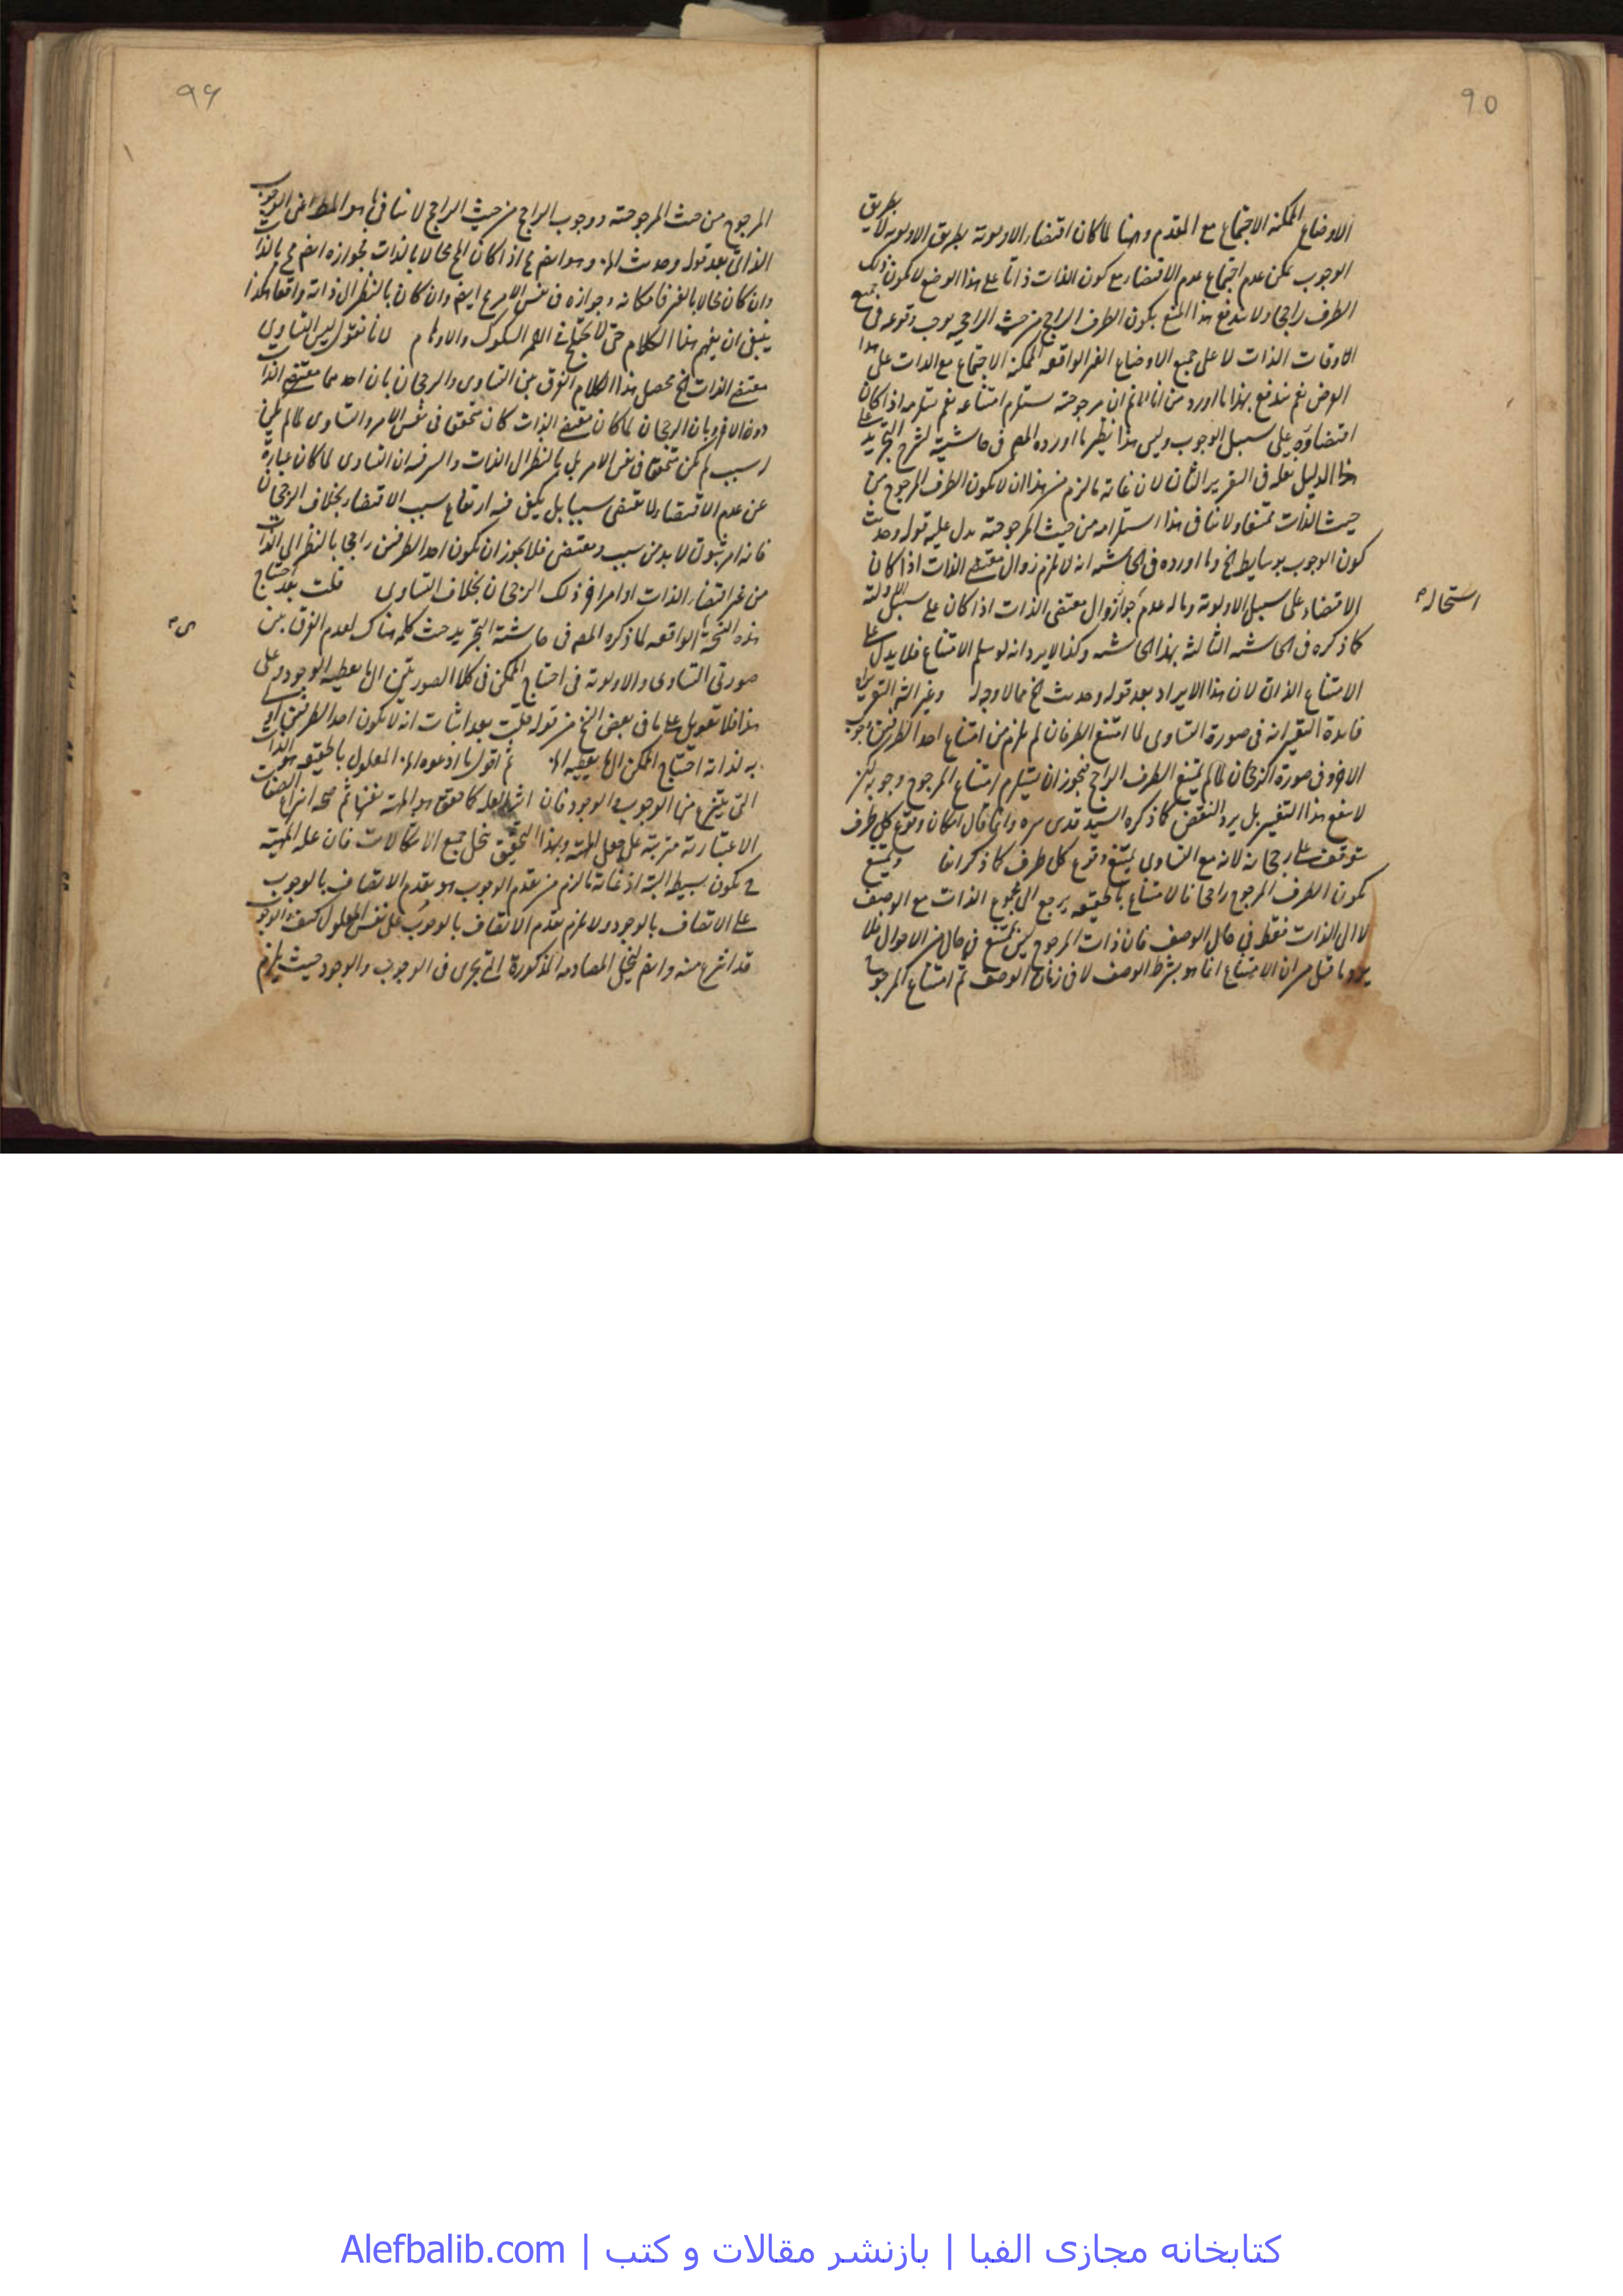 95
الاوضاع الممكنة الاجتماع مع المقدم وهنا لما كان اقتضاء الاولوية بطريق الاولوية لا بطريق
الوجوب يمكن عدم اجتماع عدم الاقتضاء مع كون الذات ذاتا على هذا الوضع لا يكون ذلك
الطرف راجحا ولا يندفع هذا المنع بكون الطرف الراجح من حيث الراجحية يوجب وقوعه في جميع
الاوقات الذات لا على جميع الاوضاع الغير الواقعة الممكنة الاجتماع مع الذات على هذا
الفرض نعم يندفع بهذا ما اورد من انا لا نم ان مرجوحيته يستلزم امتناعه نعم يستلزمه اذا كان
اقتضاؤه على سبيل الوجوب وليس هذا نظير ما اورده المص في حاشية لشرح التجريد على
هذا الدليل نقله في التقرير الثاني لان غاية ما لزم من هذا ان لا يكون الطرف المرجوح من
حيث الذات ممتنعا ولا ينافي هذا استلزامه من حيث المرجوحية يدل عليه قوله وحديث
كون الوجوب بوسايط الخ وما اورده في الحاشية انه لا يلزم زوال مقتضى الذات اذا كان
الاقتضاء على سبيل الاولوية وماله عدم جواز زوال مقتضى الذات اذا كان على سبيل الاولوية
استحالة
كما ذكره في الحاشية الثالثة بهذا الحاشية وكذا لا يرد انه لو سلم الامتناع فلا يدل على
الامتناع الذاتي لان هذا الايراد بعد قوله وحديث الخ مما لا وجه له
فايدة التقييد انه في صورة التساوي لما امتنع الطرفان لم يلزم من امتناع احد الطرفين وجوب
الاخر وفي صورة الرجحان لما لم يمتنع الطرف الراجح فيجوز ان يستلزم امتناع المرجوح وجوبه لكن
لا ينفع هذا التقييد بل يرد النقض كما ذكره السيد قدس سره وانما قال امكان وقوع كل طرف
يتوقف على رجحانه لانه مع التساوي يمتنع وقوع كل طرف كما ذكر انفا ويمتنع
يكون الطرف المرجوح راجحا فالامتناع بالحقيقة يرجع الى مجموع الذات مع الوصف
لا الى الذات فقط في حال الوصف فان ذات المرجوح ليس يمتنع في حال من الاحوال فلا
يرد ما قيل من ان الامتناع انما هو بشرط الوصف لا في زمان الوصف ثم امتناع المرجوح
96
المرجوح من حيث المرجوحية ووجوب الراجح من حيث الراجح لا ينافي ما هو المط اعني الوجوب
الذاتي بعد قوله وحديث الخ وهو ايضا اذا كان المح محالا بالذات فجوازه ايضا مح بالذات
وان كان محالا بالغير فامكانه وجوازه في نفس الامر مح ايضا وان كان بالنظر الى ذاته واقعا هكذا
ينبغي ان يفهم هذا الكلام حتى لا يختلج في الفهم الشكوك والاوهام لانا نقول ليس التساوي
مقتضى الذات الخ محصل هذا الكلام الفرق بين التساوي والرجحان بان احدهما مقتضى الذات
دون الاخر وبان الرجحان لما كان مقتضى الذات كان متحقق في نفس الامر والتساوي لما لم يكن
له سبب لم يكن متحققا في نفس الامر بل بالنظر الى الذات والسر فيه ان التساوي لما كان عبارة
عن عدم الاقتضاء لا يقتضي سببا بل يكفي فيه ارتفاع سبب الاقتضاء بخلاف الرجحان
فانه امر ثبوتي لا بد من سبب ومقتضي فلا يجوز ان يكون احد الطرفين راجحا بالنظر الى الذات
من غير اقتضاء الذات او امر اخر ذلك الرجحان بخلاف التساوي قلت بعد احتياج
هذه النسخة الواقعة لما ذكره المص في حاشية التجريد حيث كلمه هناك لعدم الفرق بين
صورتي التساوي والاولوية في احتياج الممكن في كلا الصورتين الى ما يعطيه الوجود وعلى
هذا فلا تعويل على ما في بعض النسخ من قوله قلت بعد اثبات انه لا يكون احد الطرفين اولى
به لذاته احتياج الممكن الى ما يعطيه الخ ثم اقول ما ادعوه الخ المعلول بالحقيقة هو الذات
التي ينتزع منها الوجوب والوجود فان اثر العلة كما حقق هو المهية نفسها ثم صحة انتزاع الصفات
الاعتبارية مترتبة على جعل المهية وبهذا التحقيق ينحل جميع الاشكالات فان علة المهية
ح يكون بسيطة البتة اذ غاية ما لزم من تقدم الوجوب هو تقدم الاتصاف بالوجوب
على الاتصاف بالوجود ولا يلزم تقدم الاتصاف بالوجوب على نفس المعلول كيف والوجوب
قد انتزع منه وايضا ينحل المصادمة المذكورة التي تجري في الوجوب والوجود حيث يلزم
کتابخانه مجازی الفبا | بازنشر مقالات و کتب | Alefbalib.com